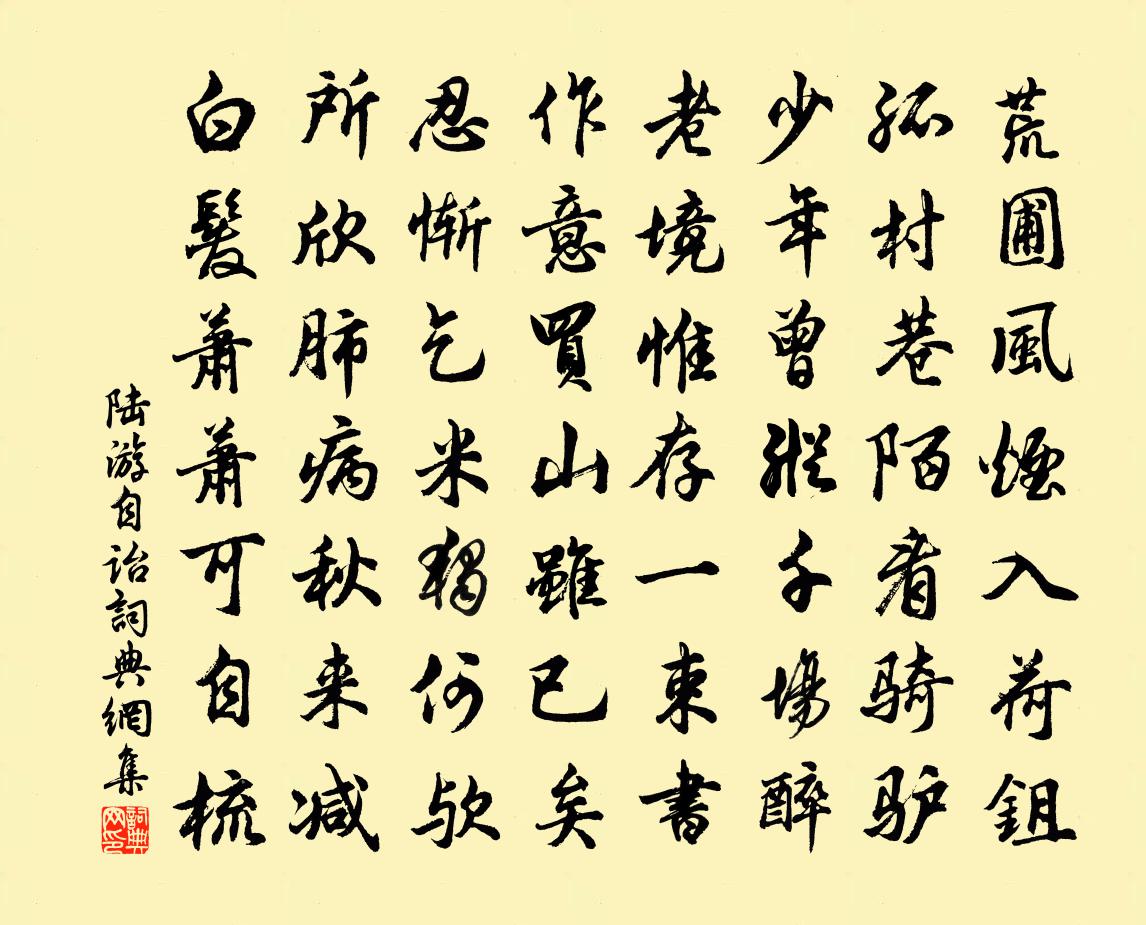 荒圃風煙入荷鉏
孤村巷陌看騎驴
少年曾縱千場醉
老境惟存一束書
作意買山雖已矣
忍慚乞米獨何欤
所欣肺病秋来减
白髮蕭蕭可自梳
陆游自诒詞典網集
詞典网印